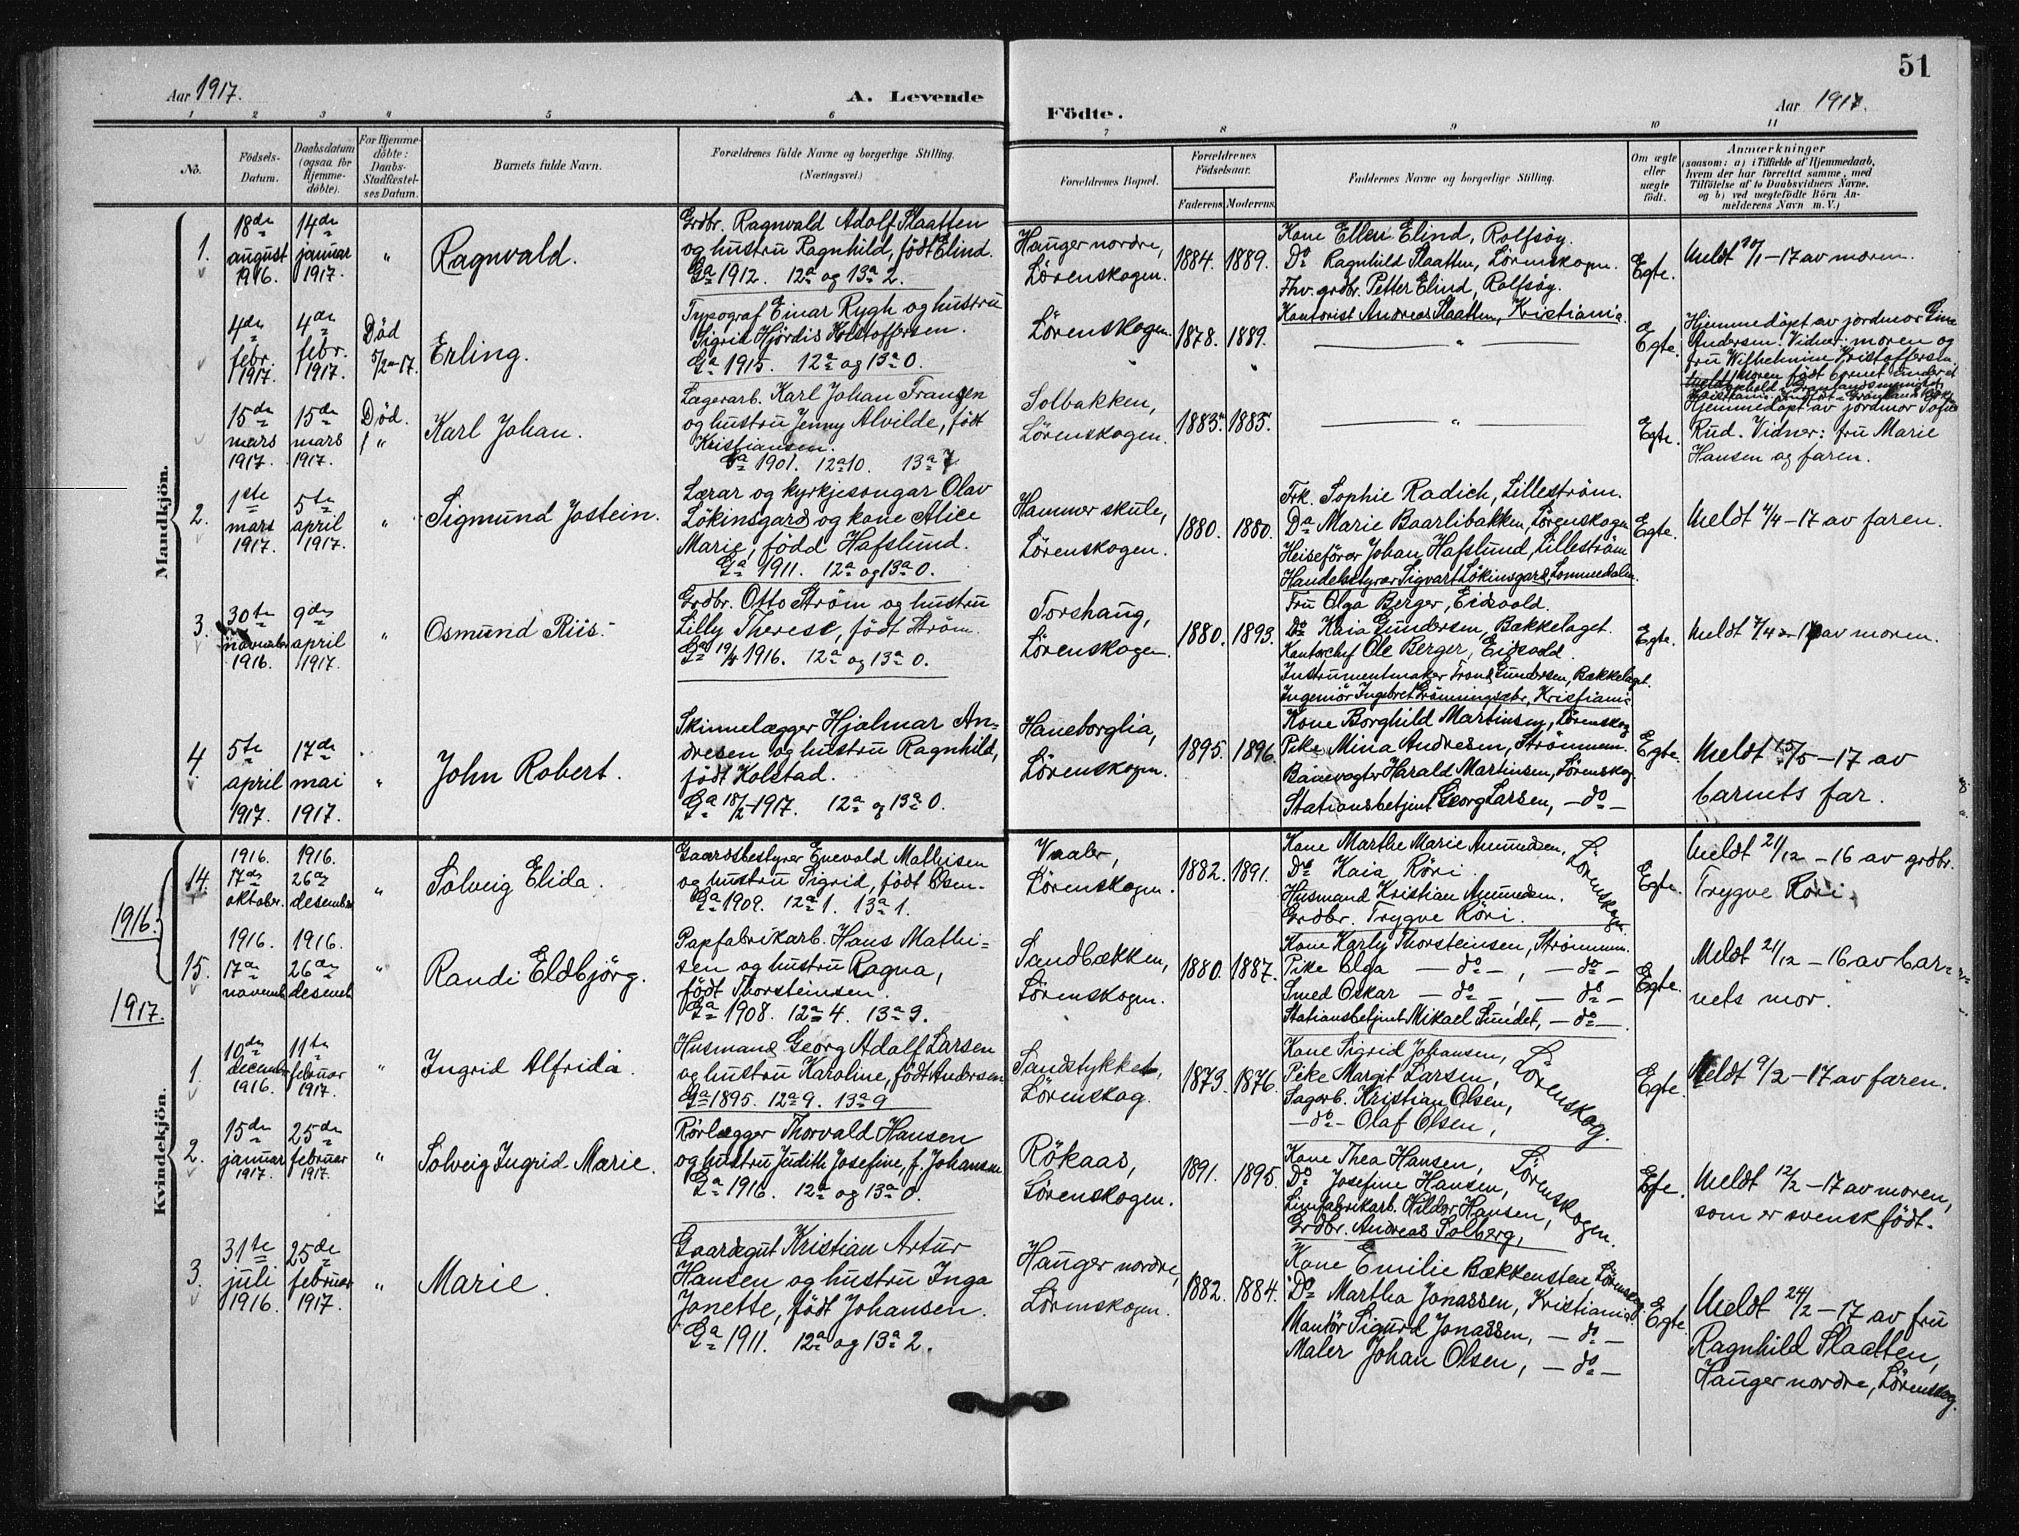 51
Aar 1917.
A. Levende
Födte.
Aar 1917.
1 2 3 4 5 6
7 8 9 10 11
No.
Födsels-
Datum.
Daabsdatum
(ogsaa for
Hjemme-
döbte).
For Hjemme-
döbte:
Daabs-
Stadfæstel-
ses Datum.
Barnets fulde Navn.
Forældrenes fulde Navne og borgerlige Stilling.
(Næringsvei.)
Forældrenes Bopæl.
Forældrenes
Födselsaar.
Faderens.
Moderens.
Faddernes Navne og borgerlige Stilling.
Om ægte
eller
uægte
födt.
Anmærkninger
(saasom: a) i Tilfælde af Hjemmedaab,
hvem der har forrettet samme, med
Tilföielse af to Daabsvidners Navne,
og b) ved uægtefödte Börn An-
melderens Navn m. V.)
Mandkjön.
1.
18de
august
1916.
14de
januar
1917.
"
Ragnvald.
Grdbr. Ragnvald Adolf Slaatten
og hustru Ragnhild, født Elind.
Ga 1912. 12a og 13a 2.
Hauger nordre,
Lörenskogen.
1884.
1889.
Kone Ellen Elind, Rolfsöy.
Do Ragnhild Slaatten, Lörenskogen.
Fhv. grdbr. Petter Elind, Rolfsöy.
Kontorist Andreas Slaatten, Kristiania.
Egte.
Meldt 10/1-17 av moren.
4de
febr.
1917.
4de
febr.
1917.
Död
5/2-17.
Erling.
Typograf Einar Rygh og hustru
Sigrid Hjördis Kristoffersen.
Ga 1915. 12a og 13a 0.
Lörenskogen.
1878.
1889.
"
Egte.
Hjemmedöpt av jordmor
Andersen. Vidner: moren og
fru Wilhelmine Kristoffersen.
15de
mars
1917.
15de
mars
1917.
Död.
Karl Johan.
Lagerarb. Karl Johan Fransen
og hustru Jenny Alvilde, født
Kristiansen.
Ga 1901. 12a 10. 13a 7
Solbakken,
Lörenskogen.
1883.
1885.
"
Egte.
Hjemmedöpt av jordmor Sofie
Rud. Vidner: fru Marie
Hansen og faren.
2.
1ste
mars
1917.
5te
april
1917.
"
Sigmund Jostein.
Lærar og kyrkjesongar Olav
Lökinsgard og kone Alice
Marie, född Hafslund.
Ga 1911. 12a og 13a 0.
Hammer skule,
Lörenskogen.
1880.
1880.
Frk. Sophie Radich, Lilleström.
Do Marie Baarlibakken, Lörenskogen
Heiseförer Johan Hafslund, Lilleström
Handelsstyrar Sigvart Lökinsgard, Lommedalen.
Egte.
Meldt 4/4-17 av faren.
3.
30te
november
1916.
9de
april
1917.
"
Osmund Riis.
Grdbr. Otto Ström og hustru
Lilly Therese, født Ström.
Ga 19/4 1916. 12a og 13a 0.
Torshaug,
Lörenskogen.
1880.
1893.
Fru Olga Berger, Eidsvold.
Do Kaia Gundersen, Bækkelaget.
Kontorchef Ole Berger, Eidsvold.
Instrumentmaker Trond Gundersen, Bækkelaget.
Ingeniör Ingebret Grönningsæter, Kristiania
Egte.
Meldt 7/4-17 av moren.
4.
5te
april
1917.
17de
mai
1917.
"
John Robert.
Skinnelægger Hjalmar An-
dresen og hustru Ragnhild,
født Kolstad.
Ga 18/2-1917. 12a og 13a 0.
Haneborglia,
Lörenskogen.
1895.
1896.
Kone Borghild Martinsen, Lörenskog
Pike Mina Andresen, Strömmen.
Banevogter Harald Martinsen, Lörenskog.
Stationsbetjent Georg Larsen, -do-
Egte.
Meldt 15/5-17 av
barnets far.
1916.
1917.
Kvindekjön.
14.
1916.
17de
oktober.
1916.
26de
desember
"
Solveig Elida.
Gaardsbestyrer Enevald Mathisen
og hustru Sigrid, født Osm-
Ga 1909. 12a 1. 13a 1.
Vaaler,
Lörenskogen.
1882.
1891.
Kone Marthe Marie Amundsen,
Do Kaia Röri.
Husmand Kristian Amundsen.
Grdbr. Trygve Röri.
Lörenskogen
Egte.
Meldt 21/12-16 av grdbr.
Trygve Röri.
15.
1916.
17de
novemb.
1916.
26de
desemb.
"
Randi Eldbjörg.
Papfabrikarb. Hans Mathi-
sen og hustru Ragna,
født Thorsteinsen.
Ga 1908. 12a 4. 13a 9.
Sandbækken,
Lörenskogen.
1880.
1887.
Kone Karly Thorsteinsen, Strömmen.
Pike Olga -do-, -do-
Smed Oskar -do-, -do-
Stationsbetjent Mikael Sundet, -do-.
Egte.
Meldt 21/12-16 av bar-
nets mor.
1.
10de
december
1916.
11te
februar
1917.
"
Ingrid Alfrida.
Husmand Georg Adolf Larsen
og hustru Karoline, født Andersen
Ga 1895. 12a 9. 13a 9
Sandstykket,
Lörenskog.
1873.
1876.
Kone Sigrid Johansen,
Pike Margit Larsen,
Sagarb. Kristian Olsen,
-do- Olaf Olsen,
Lörenskog.
Egte.
Meldt 9/2-17 av faren.
2.
15de
januar
1917.
25de
februar
1917.
"
Solveig Ingrid Marie.
Rörlægger Thorvald Hansen
og hustru Judith Josefine, f. Johansen
Ga 1916. 12a og 13a 0.
Rökaas,
Lörenskogen.
1891.
1895.
Kone Thea Hansen,
Do Josefine Hansen,
Limfabrikarb. Hildor Hansen,
Grdbr. Andreas Solberg,
Lörenskogen.
Egte.
Meldt 12/2-17 av moren,
som er svensk født.
3.
31te
juli
1916.
25de
februar
1917.
"
Marie.
Gaardsgut Kristian Artur
Hansen og hustru Inga
Jonette, født Johansen.
Ga 1911. 12a og 13a 2.
Hauger nordre,
Lörenskogen.
1882.
1884.
Kone Emilie Bækkensten, Lörenskog
Do Martha Jonassen, Kristiania.
Montör Sigurd Jonassen, -do-
Maler Johan Olsen, -do-
Egte
Meldt 24/2-17 av fru
Ragnhild Slaatten,
Hauger nordre, Lörenskog.